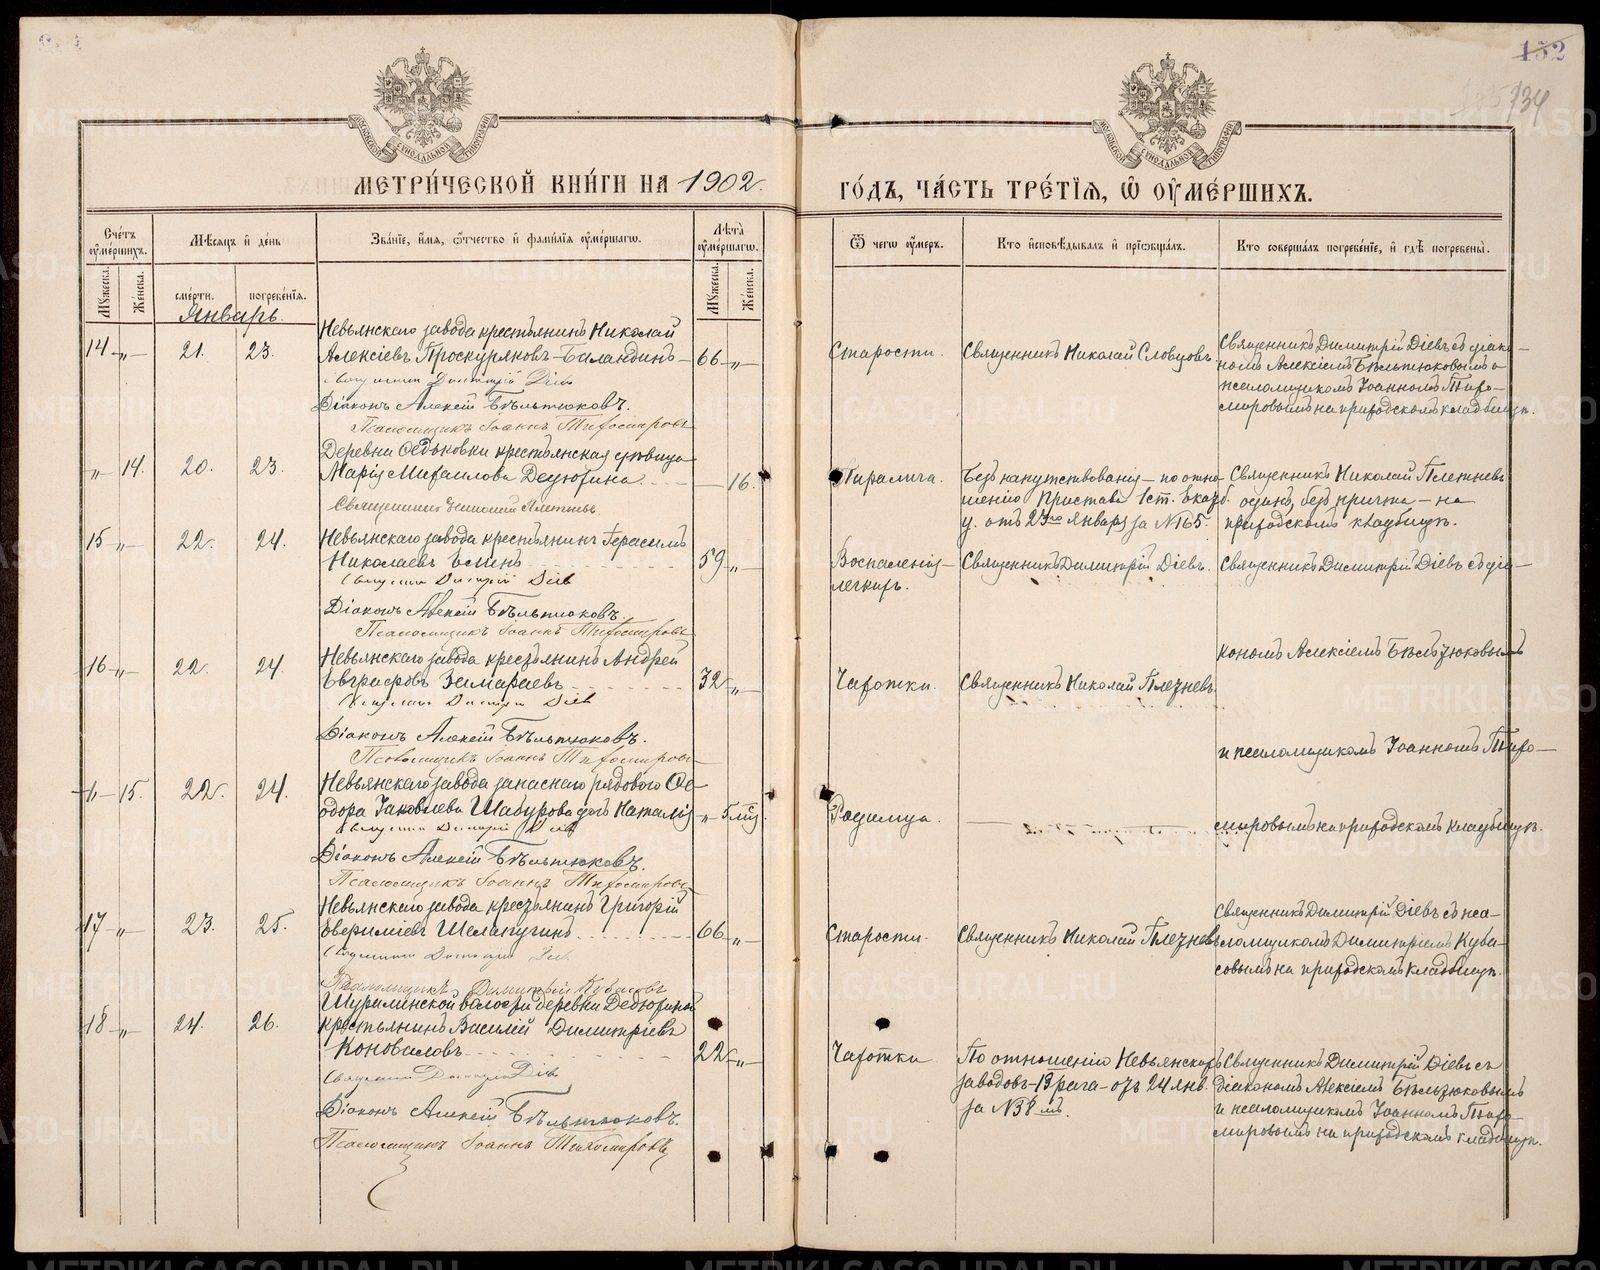 152
134
МЕТРИ́ЧЕСКОЙ КНИ́ГИ НА 1902.
ГО́ДЪ, ЧА́СТЬ ТРЕ́ТЇѦ, Ѡ҆ ОУ҆МЕ́РШИХЪ.
Сче́тъ оу҆ме́ршихъ.
Мꙋжеска.
Же́нска.
Мѣ́сѧцъ и҆ де́нь
сме́рти.
погребе́нїѧ.
Зва́нїе, и҆́мѧ, ѻ҆́тчество и҆ фами́лїѧ оу҆ме́ршагѡ.
Лѣ́та оу҆ме́ршагѡ.
Мꙋжеска.
Же́нска.
Ѿ чегѡ̀ оу҆́меръ.
Кто̀ и҆сповѣ́дывалъ и҆ прїѡбща́лъ.
Кто̀ соверша́лъ погребе́нїе, и҆ гдѣ̀ погребены̀.
Январь.
14 „ 21. 23.
Невьянскаго завода крестьянинъ Николай
Алексіевъ Проскуряковъ-Баландинъ 66 „
Священникъ Димитрій Діевъ
Діаконъ Алексій Бѣльтюковъ.
Псаломщикъ Іоаннъ Тихомировъ
Старости.
Священникъ Николай Словцовъ.
Священникъ Димитрій Діевъ съ діако-
номъ Алексіемъ Бѣльтюковымъ и
псаломщикомъ Іоанномъ Тихо-
мировымъ на приходскомъ кладбищѣ.
„ 14. 20. 23.
крестьянская дѣвица
Марія Михаилова Дедюхина 16.
Священникъ Николай Плетневъ
Паралича.
Безъ напутствованія - по отно-
шенію Пристава 1 ст. Екатр.
у. отъ 23го января за № 165.
Священникъ Николай Плетневъ
одинъ, безъ причта - на
приходскомъ кладбищѣ.
15 „ 22. 24.
Невьянскаго завода крестьянинъ Герасимъ
Николаевъ 59 „
Священникъ Димитрій Діевъ
Діаконъ Алексій Бѣльтюковъ.
Псаломщикъ Іоаннъ Тихомировъ
Воспаленія
легкихъ.
Священникъ Димитрій Діевъ.
Священникъ Димитрій Діевъ съ діа-
16 „ 22. 24.
Невьянскаго завода крестьянинъ Андрей
Евграфовъ 32 „
Священникъ Димитрій Діевъ
Діаконъ Алексій Бѣльтюковъ.
Псаломщикъ Іоаннъ Тихомировъ
Чахотки.
Священникъ Николай Плетневъ.
кономъ Алексіемъ Бѣльтюковымъ
и псаломщикомъ Іоанномъ Тихо-
„ 15. 22. 24.
Невьянскаго завода запаснаго рядового Ѳе-
одора Іаковлева Шабурова дочь Наталія „ 5 мѣс.
Священникъ Димитрій Діевъ
Діаконъ Алексій Бѣльтюковъ.
Псаломщикъ Іоаннъ Тихомировъ
Родимца.
мировымъ на приходскомъ кладбищѣ.
17 „ 23. 25.
Невьянскаго завода крестьянинъ Григорій
Евфиміевъ Шелапугинъ 66 „
Священникъ Димитрій Діевъ
Псаломщикъ Димитрій Кубасовъ
Старости.
Священникъ Николай Плетневъ
Священникъ Димитрій Діевъ съ пса-
ломщикомъ Димитріемъ Куба-
совымъ на приходскомъ кладбищѣ.
18 „ 24. 26.
Шуралинской волости деревни Дедюхиной
крестьянинъ Василій Димитріевъ
Коноваловъ 22 „
Священникъ Димитрій Діевъ
Діаконъ Алексій Бѣльтюковъ.
Псаломщикъ Іоаннъ Тихомировъ
Чахотки
По отношенію Невьянскихъ
заводовъ врача - отъ 24 янв.
за № 38мъ.
Священникъ Димитрій Діевъ съ
діакономъ Алексіемъ Бѣльтюковымъ
и псаломщикомъ Іоанномъ Тихо-
мировымъ на приходскомъ кладбищѣ.
METRIKI.GASO-URAL.RU